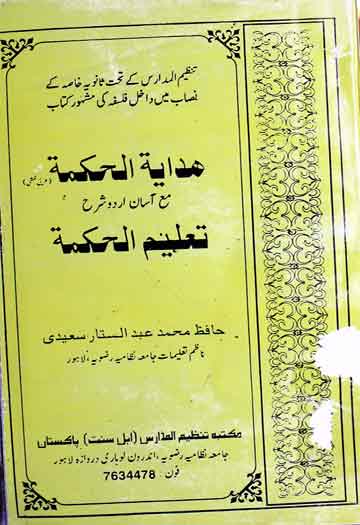 تنظیم المدارس کے تحت ثانویہ خاصہ کے
نصاب میں داخل فلسفہ کی مشہور کتاب
ھدایۃ الحکمۃ
مع آسان اردو شرح
تعلیم الحکمۃ
حافظ محمد عبدالستار سعیدی
ناظم تعلیمات جامعہ نظامیہ رضویہ، لاہور
مکتبہ تنظیم المدارس (اہل سنت) پاکستان
جامعہ نظامیہ رضویہ، اندرون لوہاری دروازہ لاہور
فون - 7634478